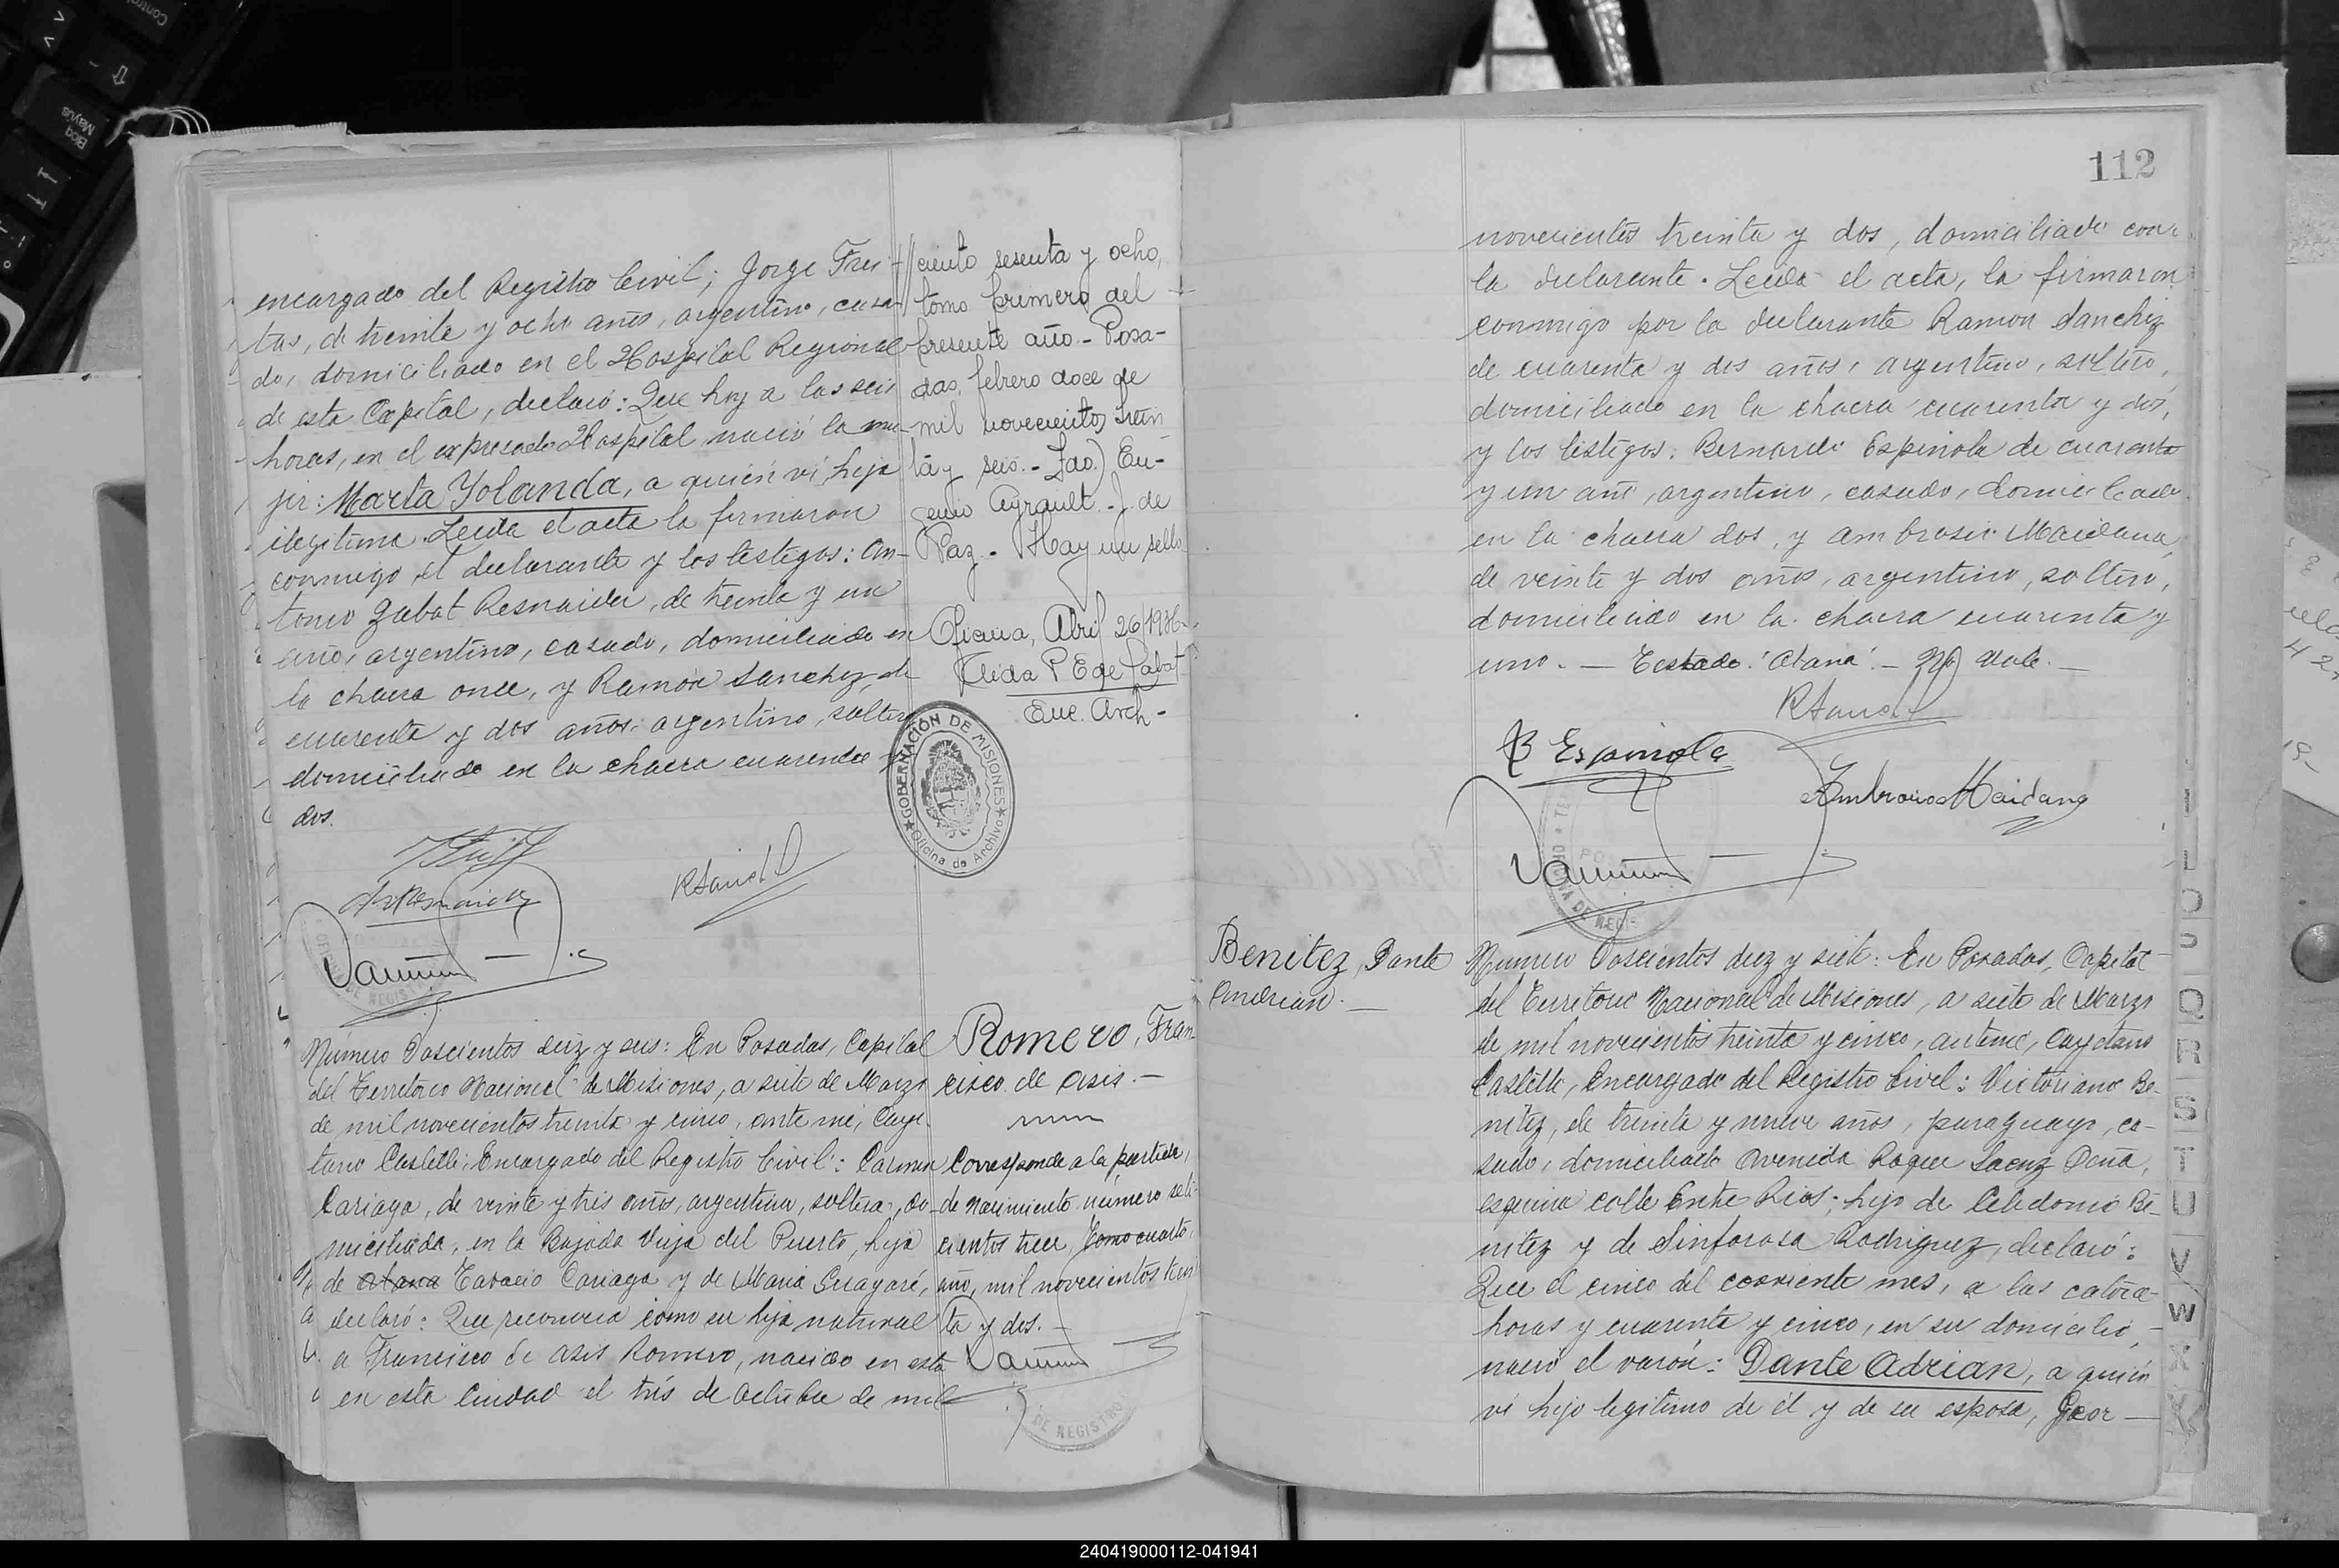 encargado del Registro Civil; Jorge Frei-
tas, de treinta y ocho años, argentino, casa-
do, domiciliado en el Hospital Regional
de esta Capital, declaró: Que hoy a las seis
horas, en el expresado Hospital nació la mu-
jer: Marta Yolanda, a quién ví, hija
ilegitima. Leida el acta la firmaron
conmigo el declarante y los testigos: An-
tonio Resnaider, de treinta y un
año, argentino, casado, domiciliado en
la chacra once, y Ramón Sanchez, de
cuarenta y dos años, argentino, soltero
domiciliado en la chacra cuarenta y
dos.
//ciento sesenta y ocho,
tomo primero del
presente año.- Posa-
das, febrero doce de
mil novecientos trein
ta y seis.- Fdo.) Eu-
genio Ayrault.- J. de
Paz.- Hay un sello
Abril 26/1936
Enc. Arch-
GOBERNACIÓN DE MISIONES
Oficina de Archivo
Numero Doscientos diez y seis: En Posadas, Capital
del Territorio Nacional de Misiones, a siete de Marzo
de mil novecientos treinta y cinco, ante mi, Caye-
tano Castelli, Encargado del Registro Civil: Carmen
Cariaga, de veinte y tres años, argentina, soltera, do-
miciliada, en la Bajada Vieja del Puerto, hija
de Cariaga y de Maria
declaró: Que reconocia como su hijo natural
a Francisco de Asis Romero, nacido en esta
en esta Ciudad el trés de Octubre de mil
Romero, Fran
cisco de Asis.-
Corresponde a la partida
de nacimiento número sete
cientos trece, Tomo cuarto,
año, mil novecientos trein
ta y dos.-
DE REGISTRO
112
novecientos treinta y dos, domiciliado con
la declarante. Leida el acta, la firmaron
conmigo por la declarante Ramon Sanchez
de cuarenta y dos años, argentino, soltero,
domiciliado en la chacra cuarenta y dos,
y los testigos: Bernardo Espinola de cuarenta
y un año, argentino, casado, domiciliado
en la chacra dos, y Ambrosio Maidana,
de veinte y dos años, argentino, soltero,
domiciliado en la chacra cuarenta y
uno. — Testado: "Atana". - No Vale. —
B Espinola
Ambrosio Maidana
Benitez, Dante
Andrian. —
Numero Doscientos diez y siete: En Posadas, Capital
del Territorio Nacional de Misiones, a siete de Marzo
de mil novecientos treinta y cinco, ante mi, Cayetano
Castelli, Encargado del Registro Civil: Victoriano Be-
nitez, de treinta y nueve años, paraguayo, ca-
sado, domiciliado Avenida Roque Saenz Peña,
esquina calle Entre Rios; hijo de Celedonio Be-
nitez y de Sinforosa Rodriguez, declaró:
Que el cinco del corriente mes, a las catorce
horas y cuarenta y cinco, en su domicilio,
nació el varón: Dante Adrian, a quién
ví hijo legitimo de él y de su esposa, Geor —
O
P
Q
R
S
T
U
V
W
X
Y
240419000112-041941